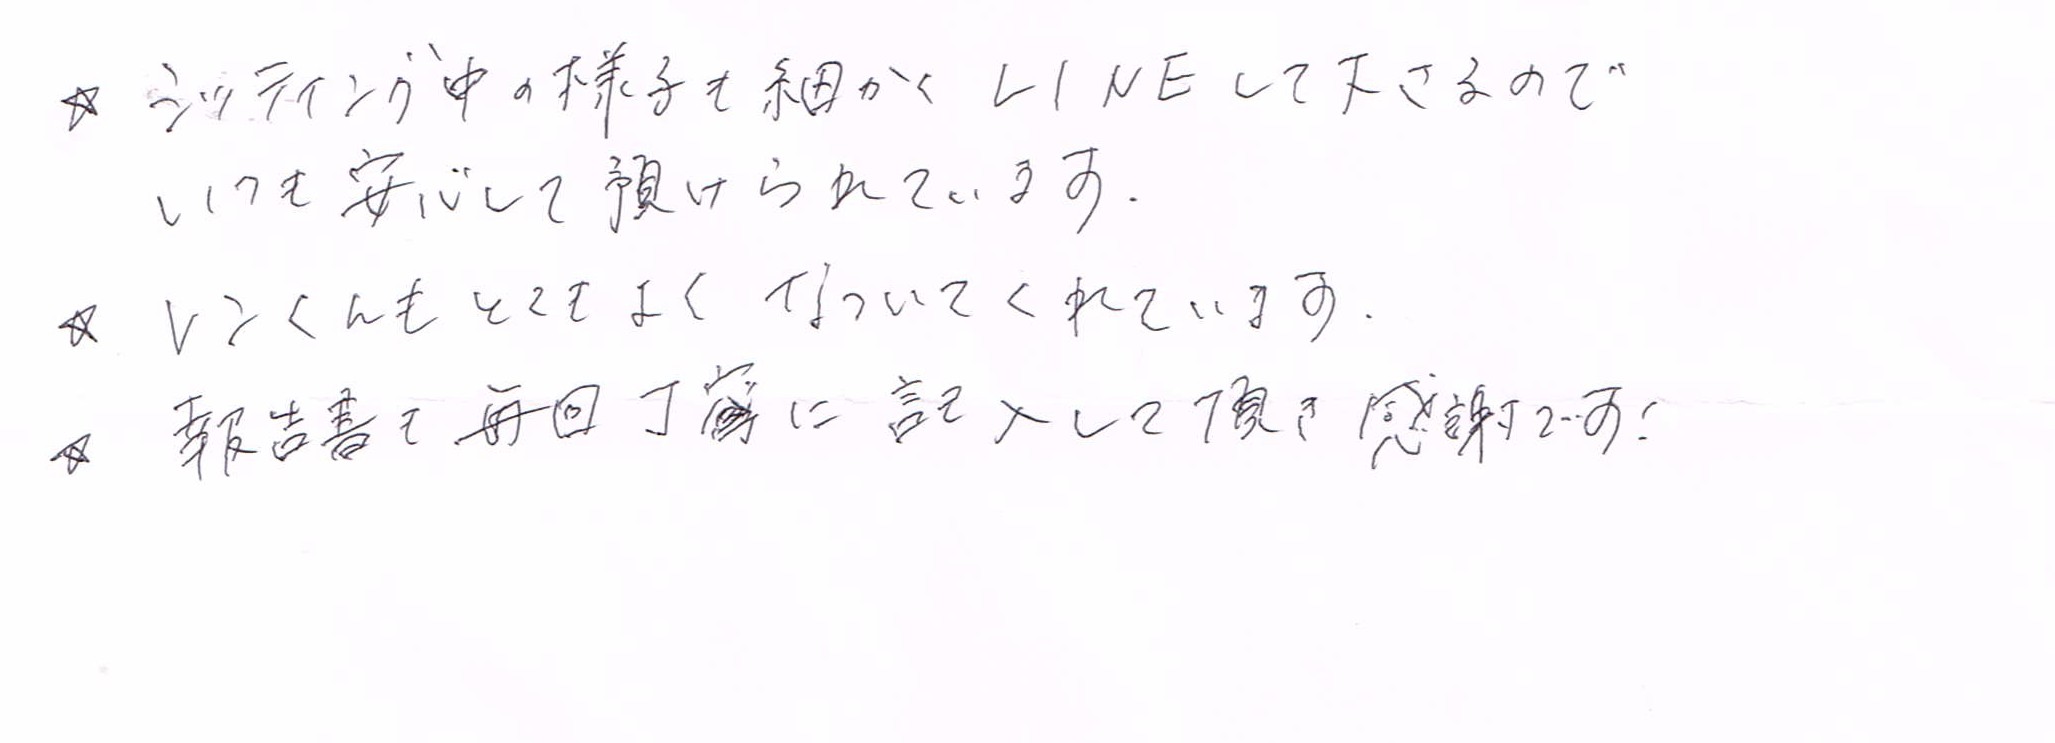 ☆ シッティング中の様子も細かくLINEして下さるので
いつも安心して預けられています.
☆ レンくんもとてもよくなついてくれています.
☆ 報告書も毎回丁寧に記入して頂き感謝です!